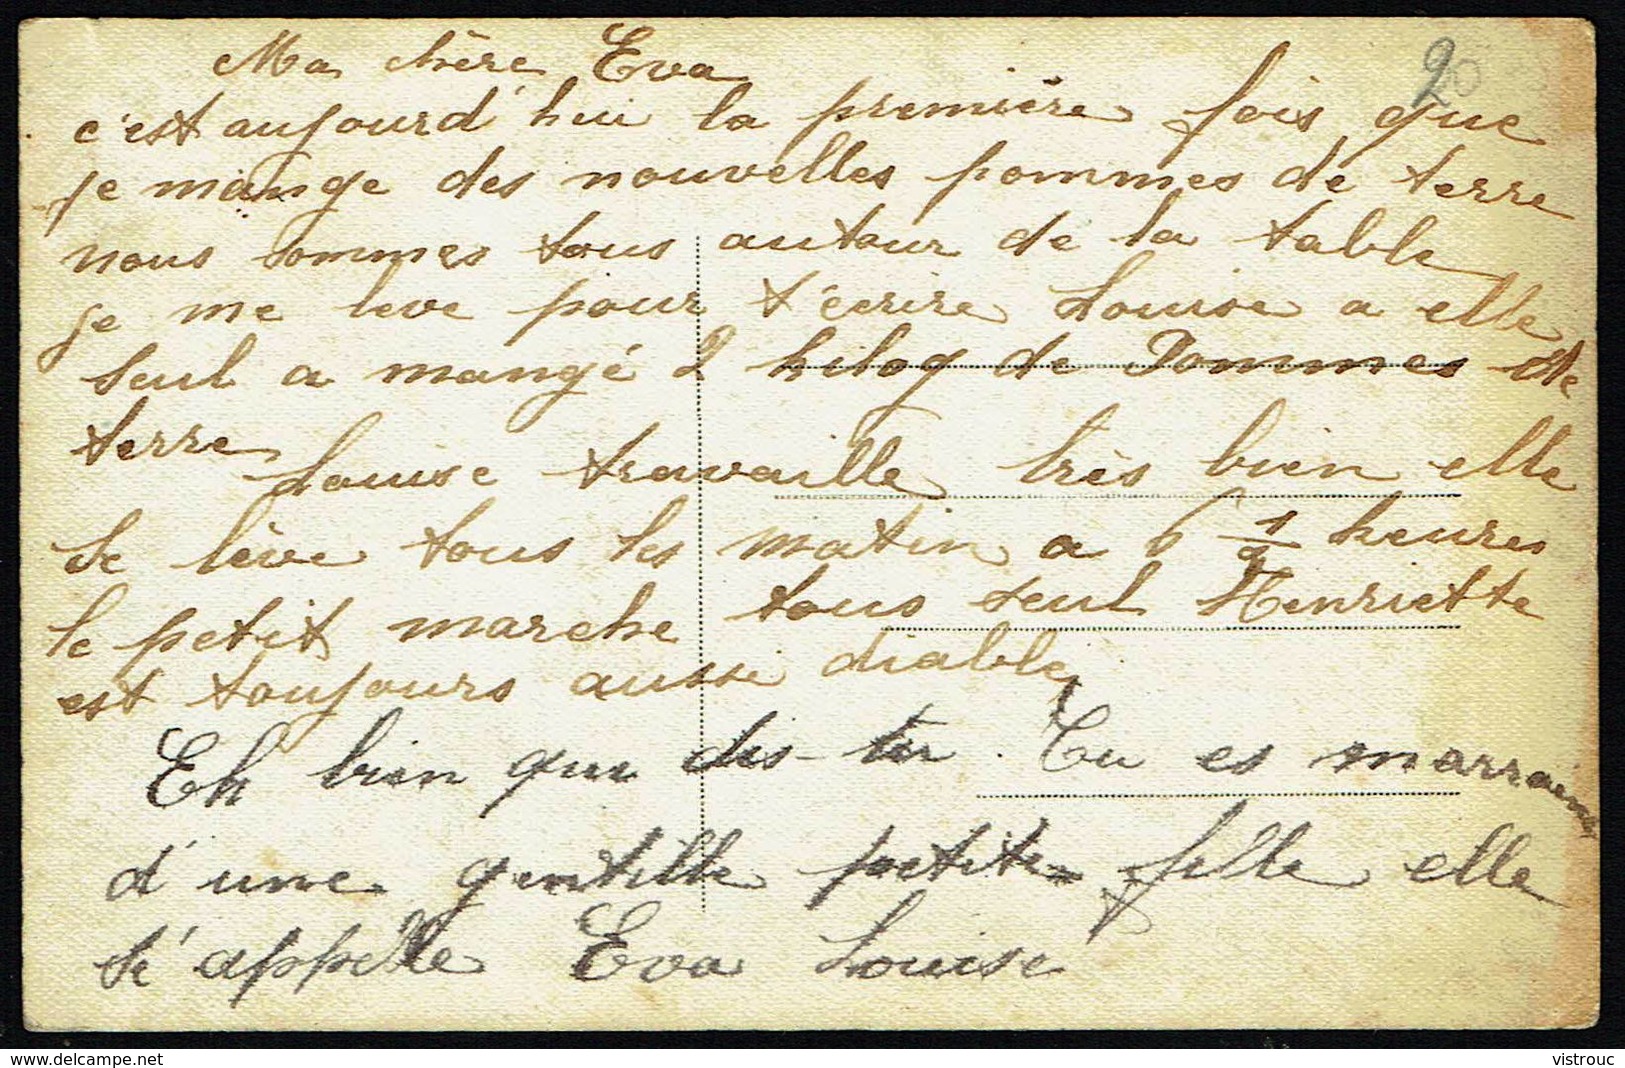 20
Ma chère Eva
c'est aujourd'hui la première fois que
je mange des nouvelles pommes de terre
nous sommes tous autour de la table
je me leve pour t'écrire Louise a elle
seul a mangé 2 kilog de Pommes de
terre
Louise travaille très bien elle
se lève tous les matin a 6 1/2 heures
le petit marche tous seul Henriette
est toujours aussi diable
Eh bien que dis-tu. Tu es marraine
d'une gentille petite fille elle
s'appelle Eva Louise
delcampe.net
vistrouc